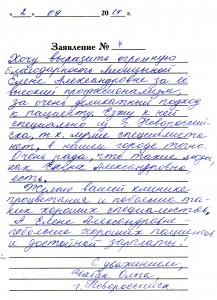 « 2 » 09 2017 г.
Заявление № 4
Хочу выразить огромную
благодарность
Елене Александровне за её
высокий профессионализм,
за очень деликатный подход
к пациенту. Езжу к ней
специально из г. Новоросси
йска, т.к. лучше специалиста
нет, в нашем городе точно.
Очень рада, что такие люди,
как Елена Александровна
есть.
Желаю вашей клинике
процветания и побольше та-
ких хороших специалистов,
а Елене Александровне
побольше хороших пациентов
и достойной зарплаты!
С уважением,
Ольга,
г. Новороссийск